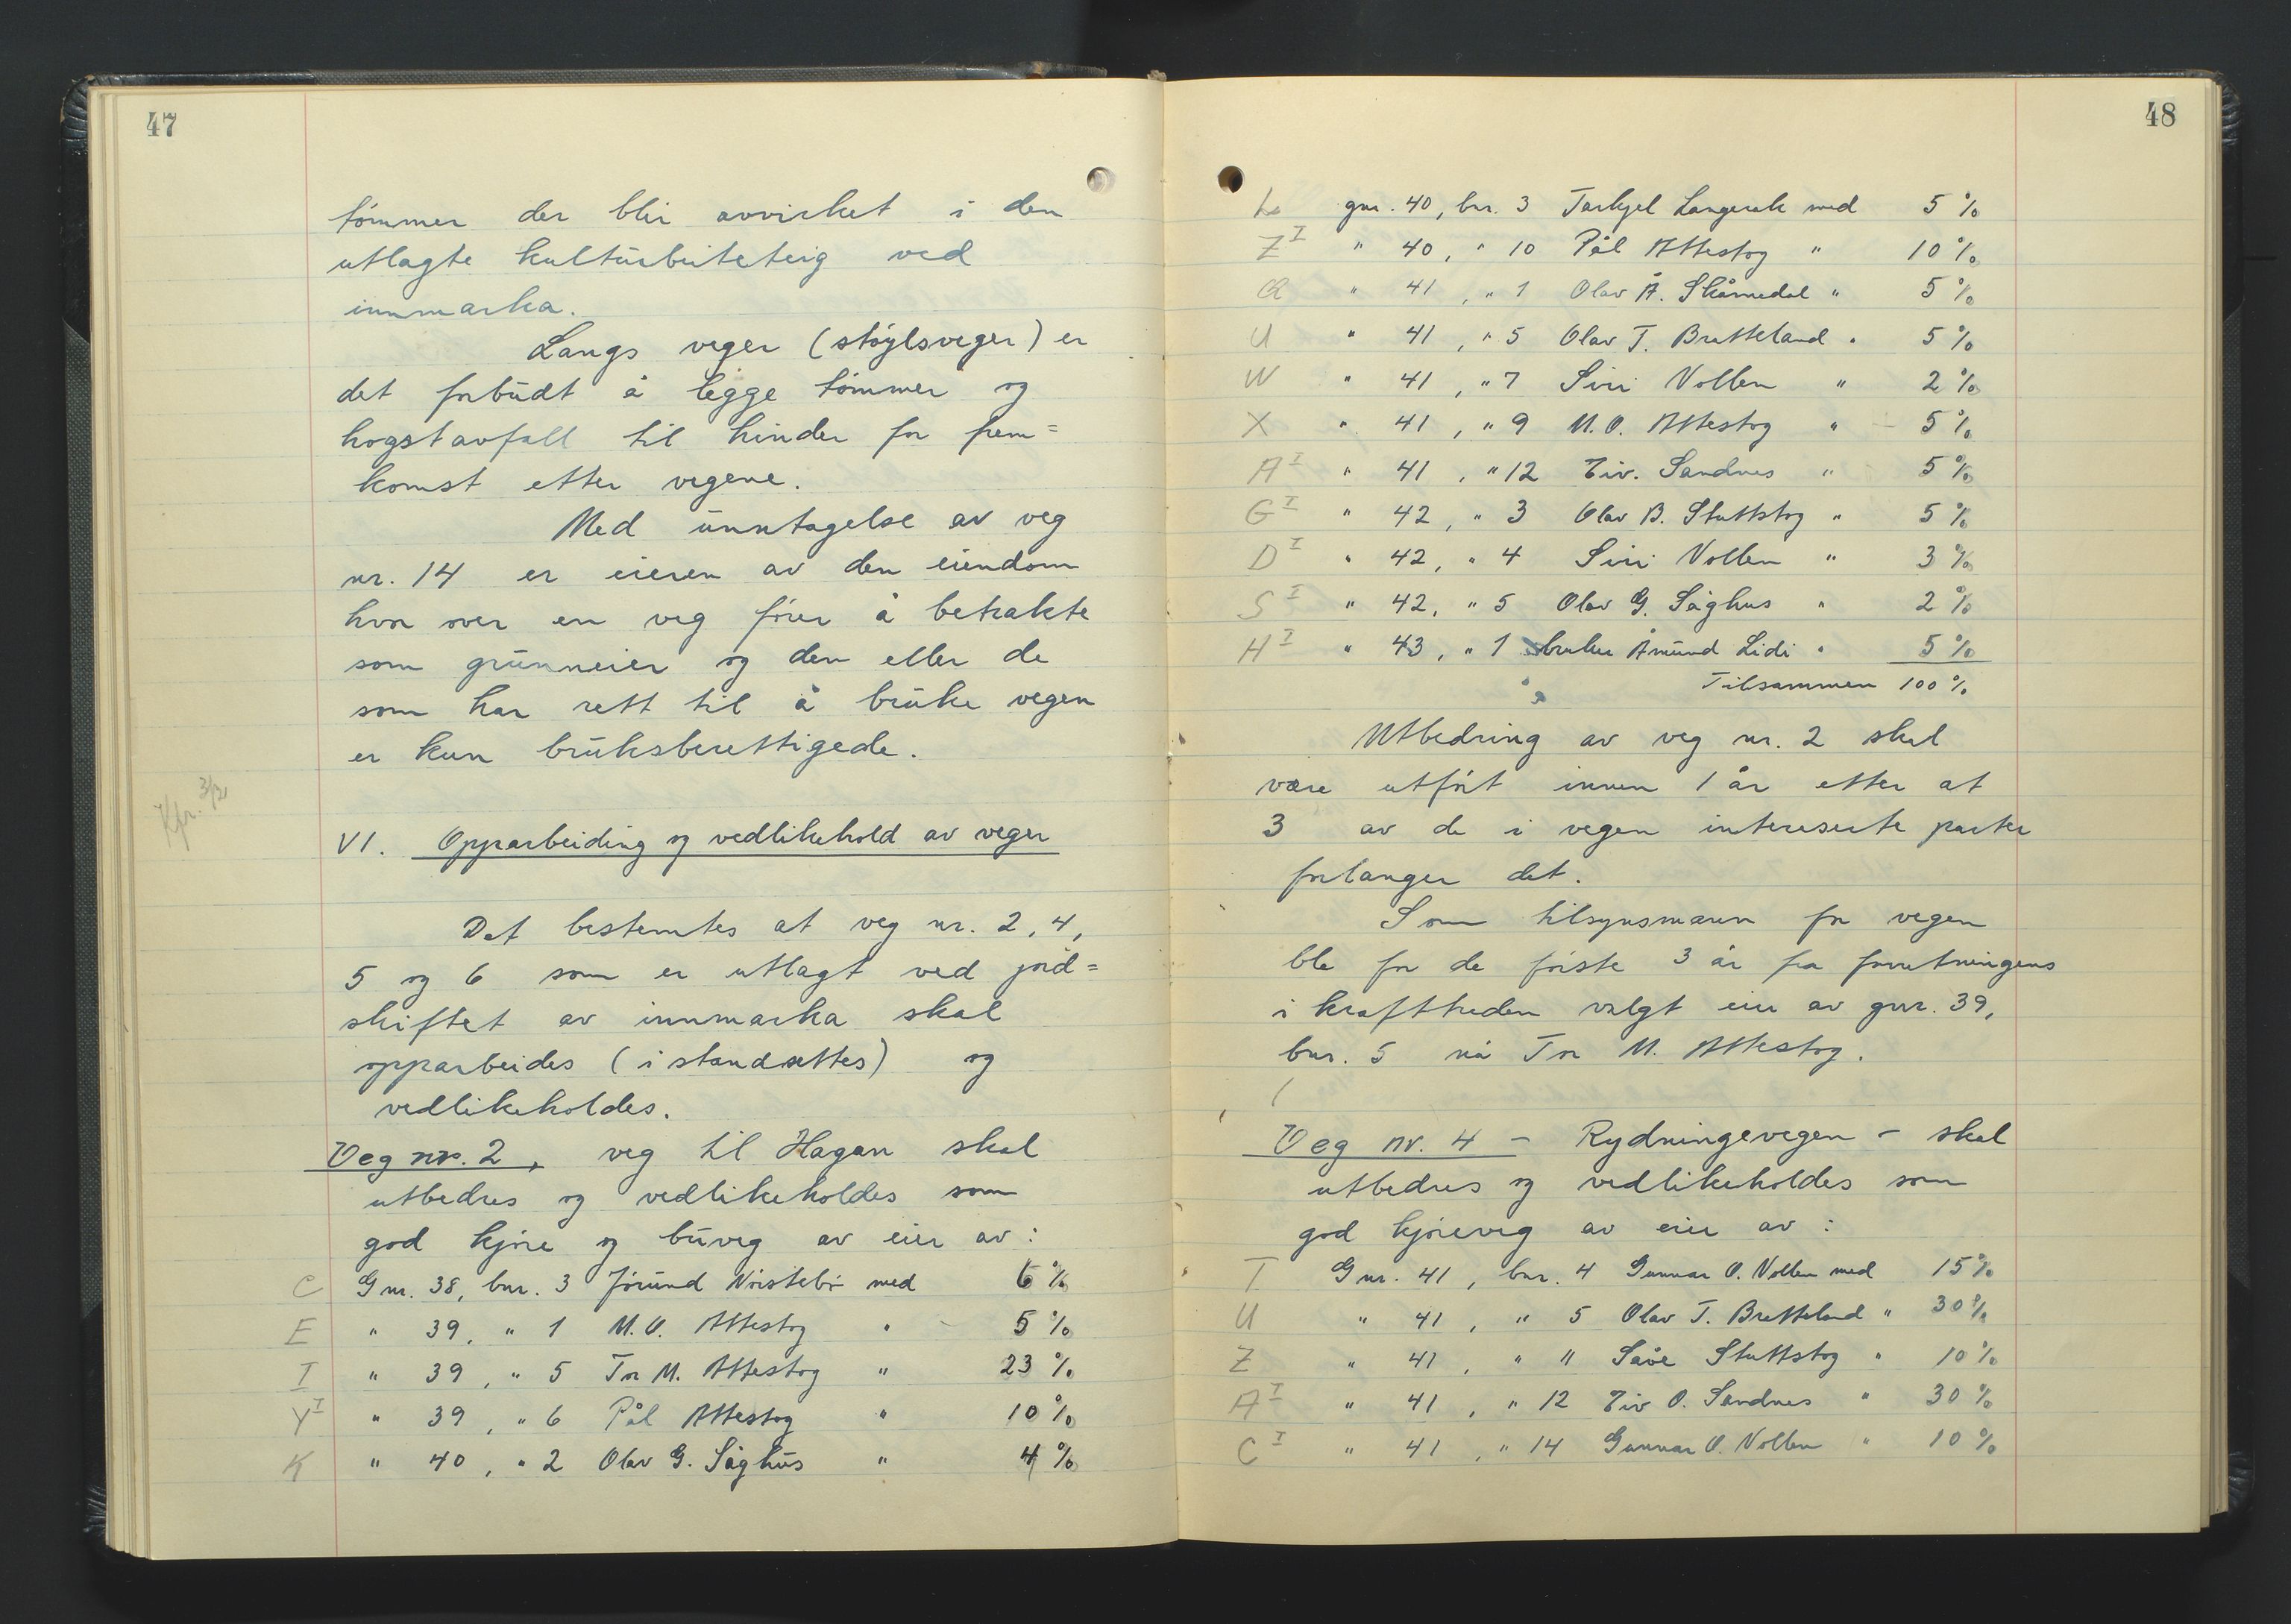 47
tømmer der blir avvirket i den
utlagte kultūrbeiteteig ved
innmarka.
Langs veger (støylsveger) er
det forbūdt å legge tømmer og
hogstavfall til hinder for frem=
komst etter vegene.
Med ūnntagelse av veg
nr. 14 er eieren av den eiendom
hvor over en veg fører å betrakte
som grūnneier og den eller de
som har rett til å brūke vegen
er kun brūksberettigede.
Kfr. 3/21
VI. Opparbeiding og vedlikehold av veger
Det bestemtes at veg nr. 2, 4,
5 og 6 som er utlagt ved jord=
skiftet av innmarka skal
opparbeides (i standsettes) og
vedlikeholdes.
Veg nr. 2, veg til Hagan skal
utbedres og vedlikeholdes som
god kjøre og būveg av eier av:
C Gnr. 38, bnr. 3 Jørūnd Nørstebø med 6 %
E " 39, " 1 M. O. Attestog " 5 %
I " 39, " 5 Tor M. Attestog " 23 %
Y I " 39, " 6 Pål Attestog " 10 %
K " 40, " 2 Olav G. Såghūs " 4 %
48
L gnr. 40, bnr. 3 Tarkjel Langerak med 5 %
Z I " 40, " 10 Pål Attestog " 10 %
Q " 41, " 1 Olav Å. Skåmedal " 5 %
U " 41, " 5 Olav T. Bratteland " 5 %
W " 41, " 7 Siri Vollen " 2 %
X " 41, " 9 M. O. Attestog " 5 %
A I " 41, " 12 Eiv. Sandnes " 5 %
G I " 42, " 3 Olav B. Stuttstog " 5 %
D I " 42, " 4 Siri Vollen " 3 %
S I " 42, " 5 Olav G. Såghus " 2 %
H I " 43, " 1 bruker Åmūnd Lidi " 5 %
Tilsammen 100 %
Utbedring av veg nr. 2 skal
være utført innen 1 år etter at
3 av de i vegen intereserte parter
forlanger det.
Som tilsynsmann for vegen
ble for de første 3 år fra forretningens
i krafttreden valgt eier av gnr. 39,
bnr. 5 nå Tor M. Attestog.
Veg nr. 4 - Rydningevegen - skal
utbedres og vedlikeholdes som
god kjøreveg av eier av:
T Gnr. 41, bnr. 4 Gunnar O. Vollen med 15 %
U " 41, " 5 Olav T. Bratteland " 30 %
Z " 41, " 11 Såve Stuttstog " 10 %
A I " 41, " 12 Eiv O. Sandnes " 30 %
C I " 41, " 14 Gunnar O. Vollen " 10 %